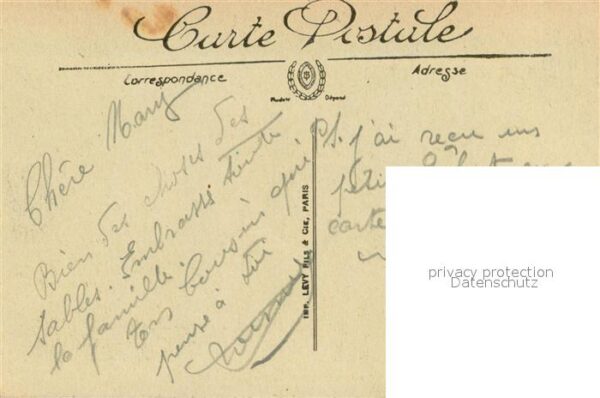 Carte Postale
Correspondance
Adresse
Modèle Déposé
Chère Mary
Bien des choses des
Sables. Embrasse toute
la famille.
Ton cousin qui
pense à toi
IMP. LEVY FILS & CIE, PARIS
PS. j'ai reçu ms
carte
privacy protection
Datenschutz